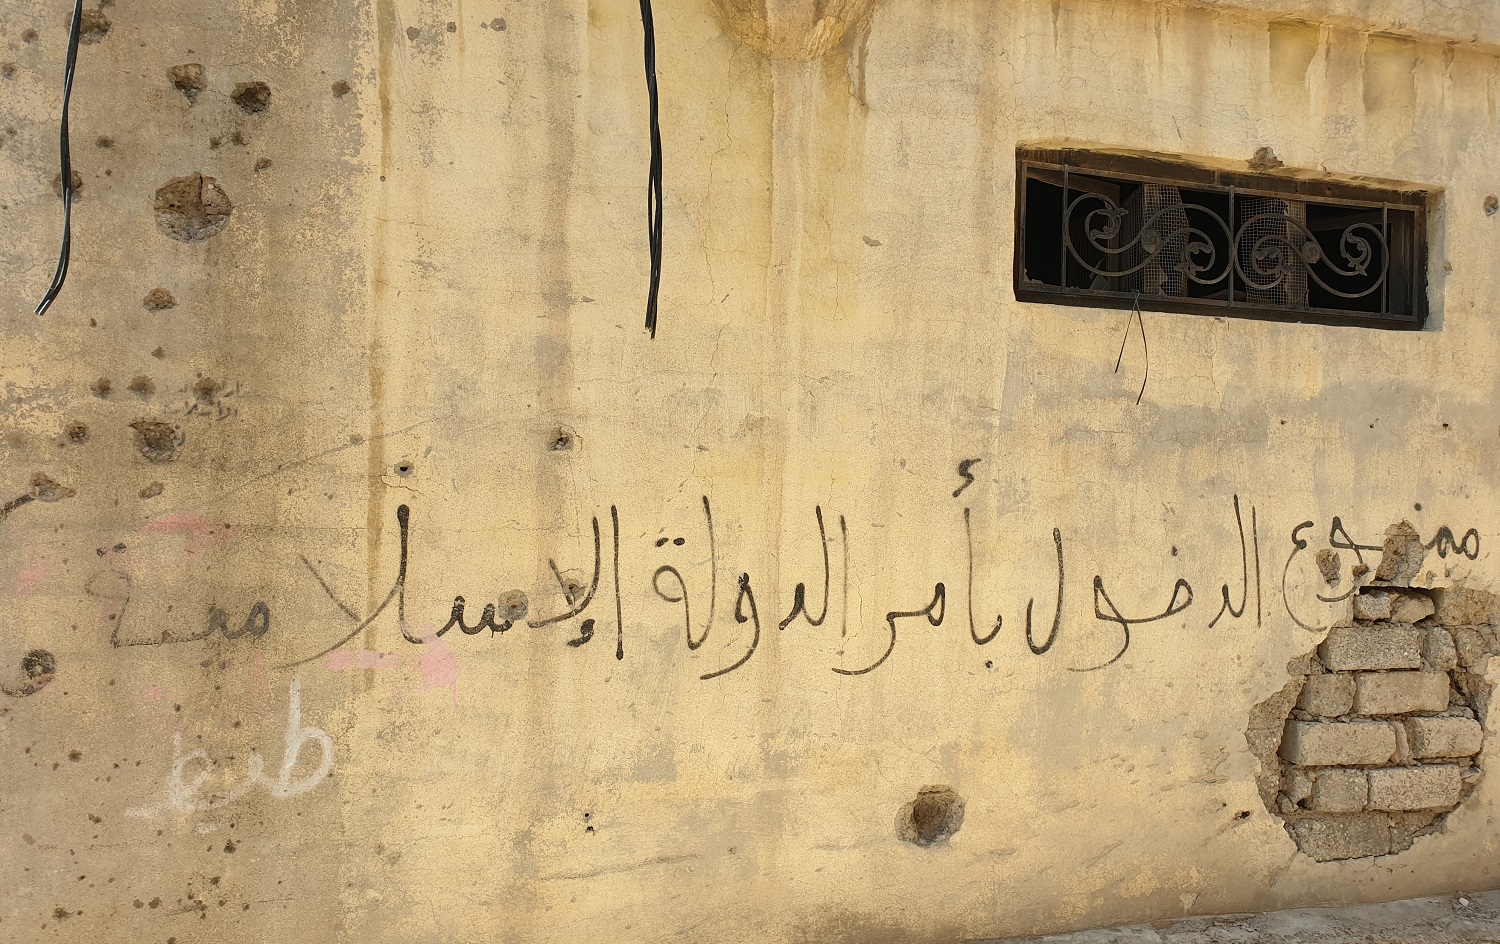 ممنوع الدخول بأمر الدولة الإسلامية